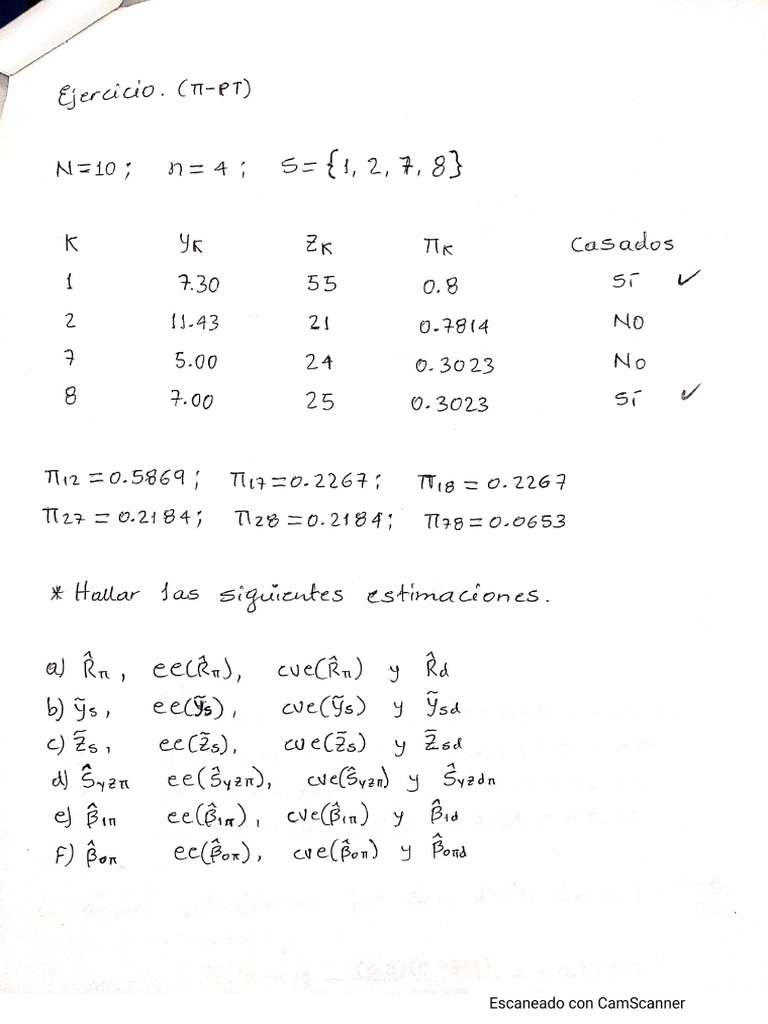 Ejercicio. (π-PT)
N=10; n=4; S={1, 2, 7, 8}
K yK zK πK Casados
1 7.30 55 0.8 Sí ✓
2 11.43 21 0.7814 NO
7 5.00 24 0.3023 No
8 7.00 25 0.3023 Sí ✓
π12 = 0.5869; π17 = 0.2267; π18 = 0.2267
π27 = 0.2184; π28 = 0.2184; π78 = 0.0653
* Hallar las siguientes estimaciones.
a) R̂π, ee(R̂π), cve(R̂π) y R̂d
b) ỹs, ee(ỹs), cve(ỹs) y ỹsd
c) z̃s, ee(z̃s), cve(z̃s) y z̃sd
d) Ŝyzπ ee(Ŝyzπ), cve(Ŝyzπ) y Ŝyzdπ
e) β̂1π ee(β̂1π), cve(β̂1π) y β̂1d
f) β̂0π ee(β̂0π), cve(β̂0π) y β̂0πd
Escaneado con CamScanner